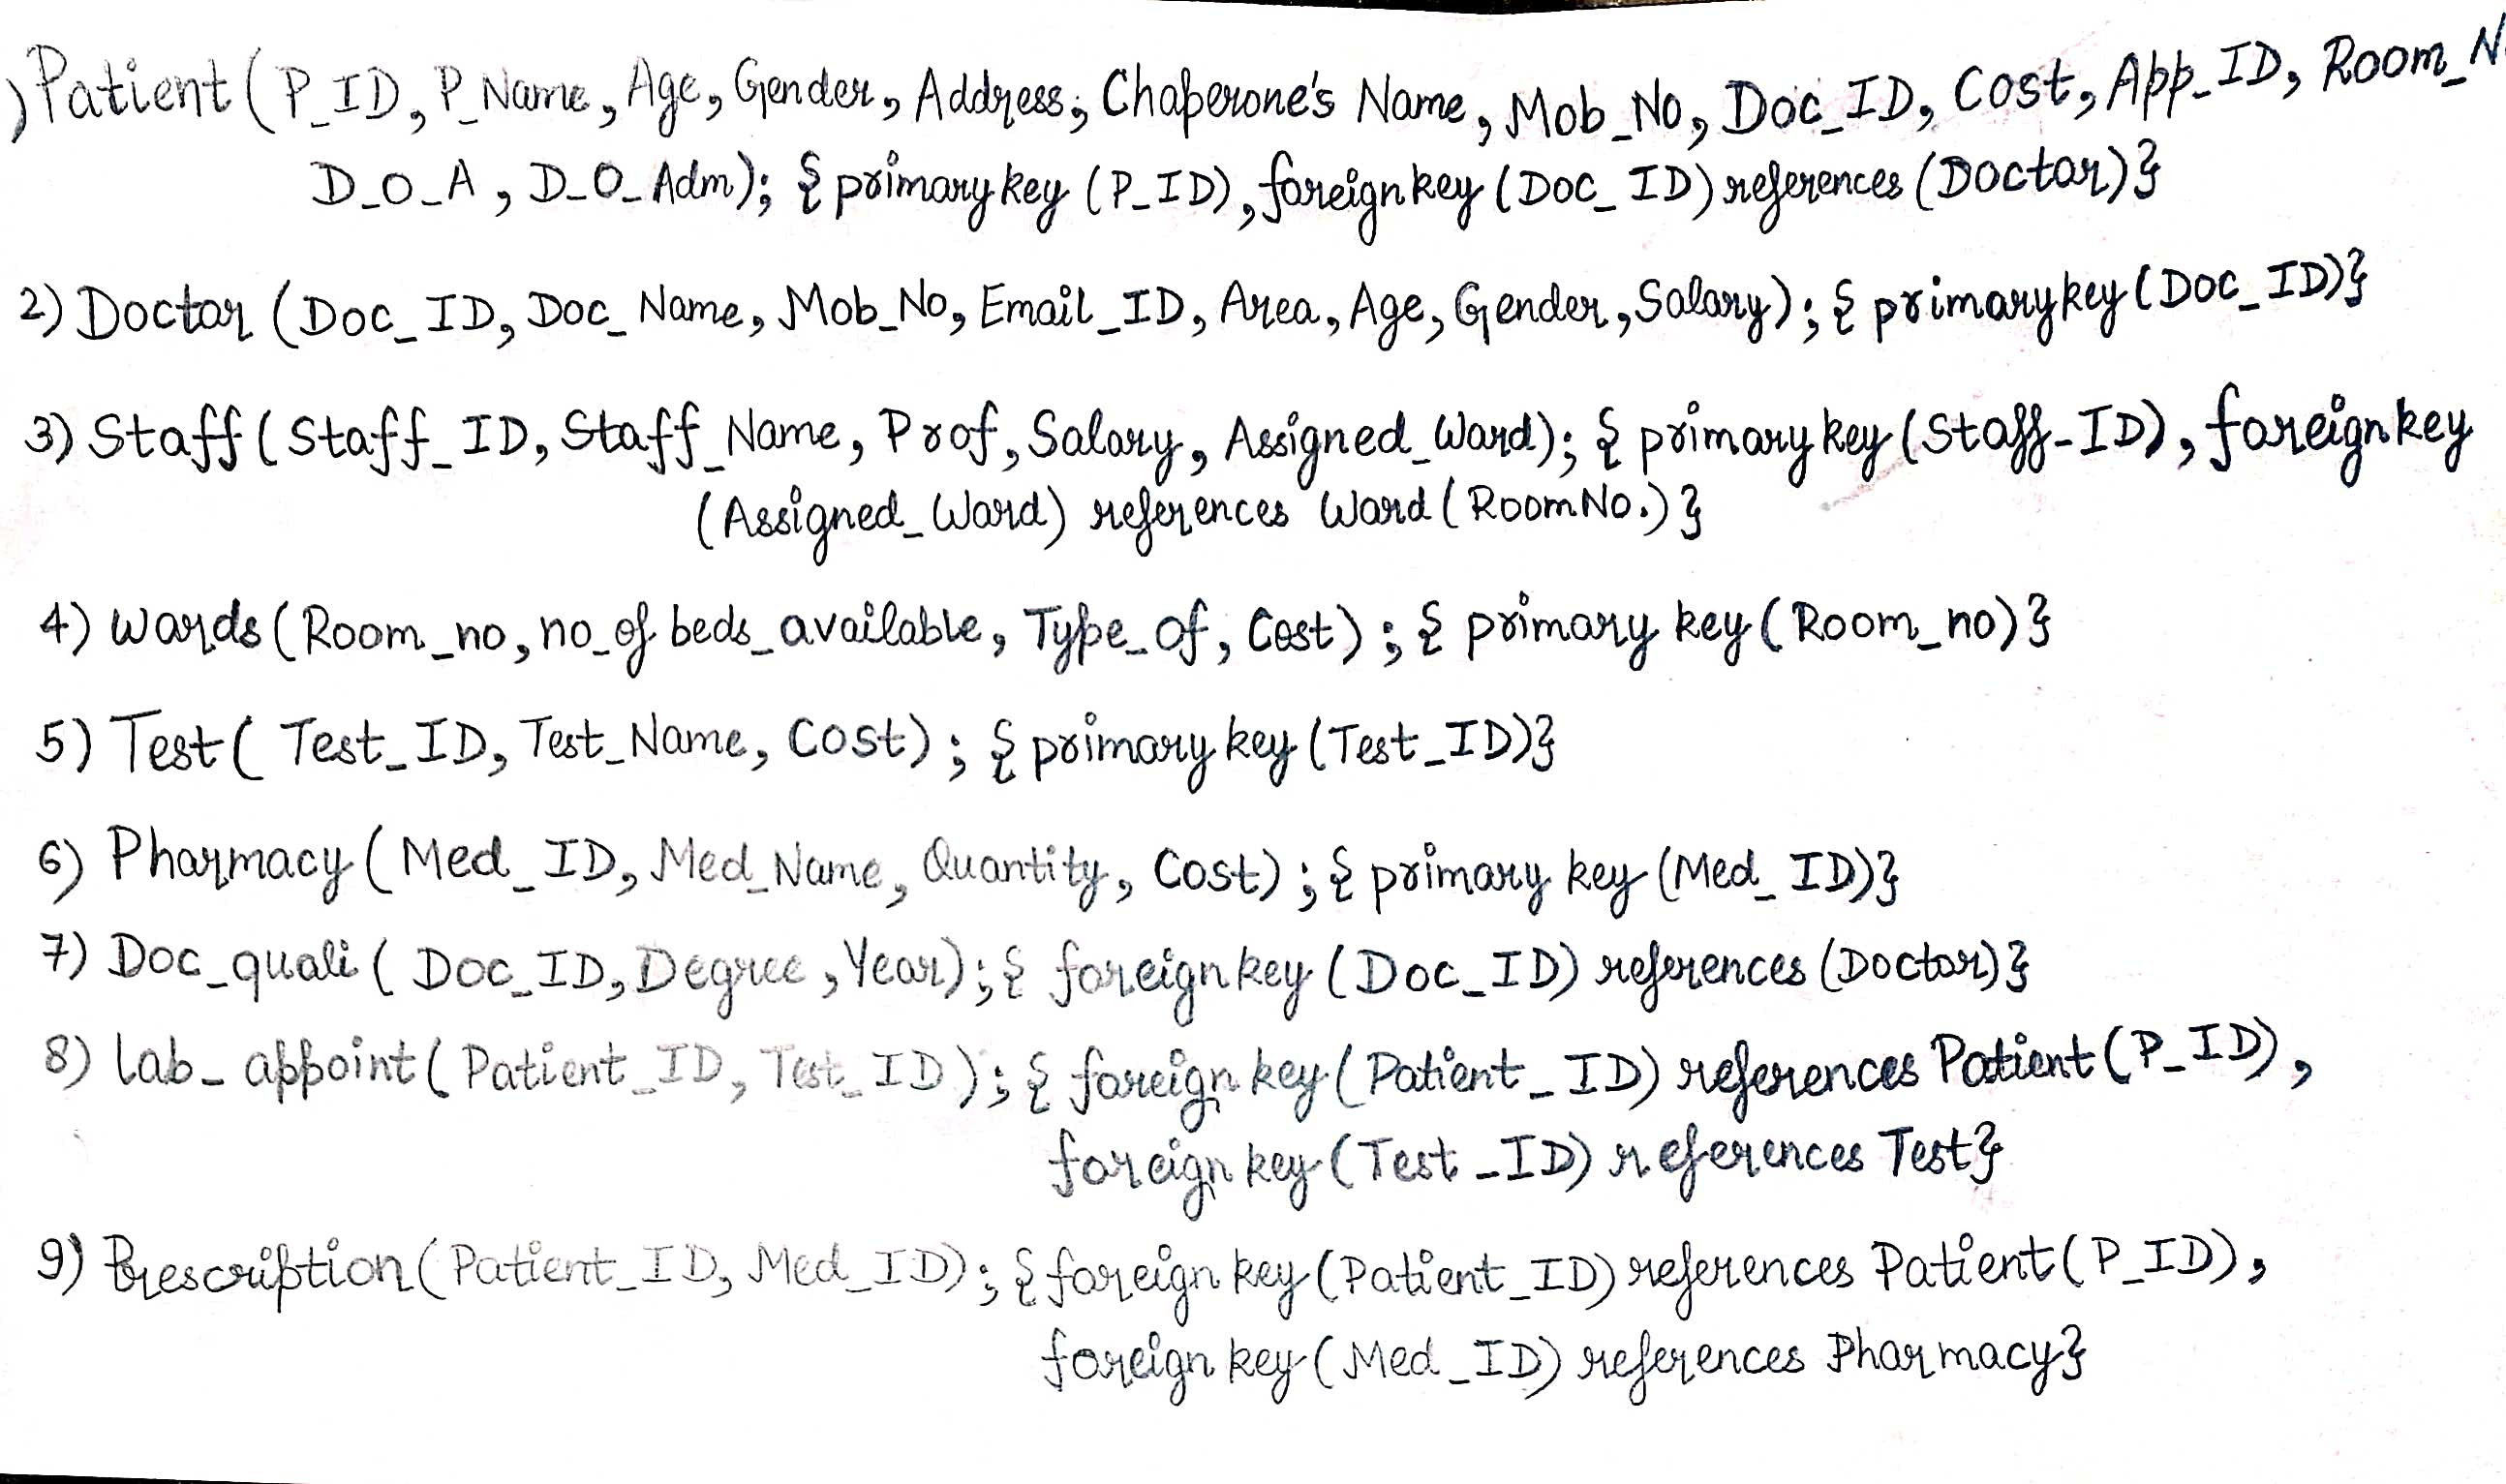 )Patient (P_ID, P_Name, Age, Gender, Address, Chaperone's Name, Mob_No, Doc_ID, Cost, App_ID, Room_N
D_O_A, D_O_Adm); {primary key (P_ID), foreign key (Doc_ID) references (Doctor)}
2) Doctor (Doc_ID, Doc_Name, Mob_No, Email_ID, Area, Age, Gender, Salary); {primary key (Doc_ID)}
3) Staff (Staff_ID, Staff_Name, Prof, Salary, Assigned_Ward); {primary key (Staff-ID), foreign key
(Assigned_Ward) references Ward (Room No.)}
4) Wards (Room_no, no_of beds_available, Type_of, Cost); {primary key (Room_no)}
5) Test (Test_ID, Test_Name, Cost); {primary key (Test_ID)}
6) Pharmacy (Med_ID, Med_Name, Quantity, Cost); {primary key (Med_ID)}
7) Doc_quali (Doc_ID, Degree, Year); {foreign key (Doc_ID) references (Doctor)}
8) lab_appoint (Patient_ID, Test_ID); {foreign key (Patient_ID) references Patient (P_ID),
foreign key (Test_ID) references Test}
9) Prescription (Patient_ID, Med_ID); {foreign key (Patient_ID) references Patient (P_ID),
foreign key (Med_ID) references Pharmacy}